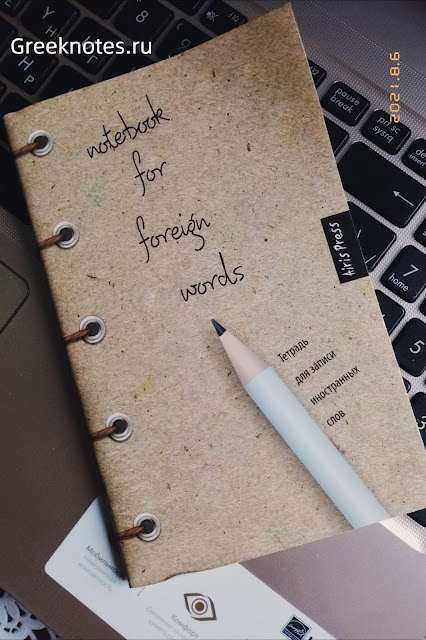 Greeknotes.ru
2021.8.6
notebook
for
foreign
words
Hiris Press
Тетрадь
для записи
иностранных
слов
pause
break
prt sc
sysrq
insert
7
home
8
5
Комфорт